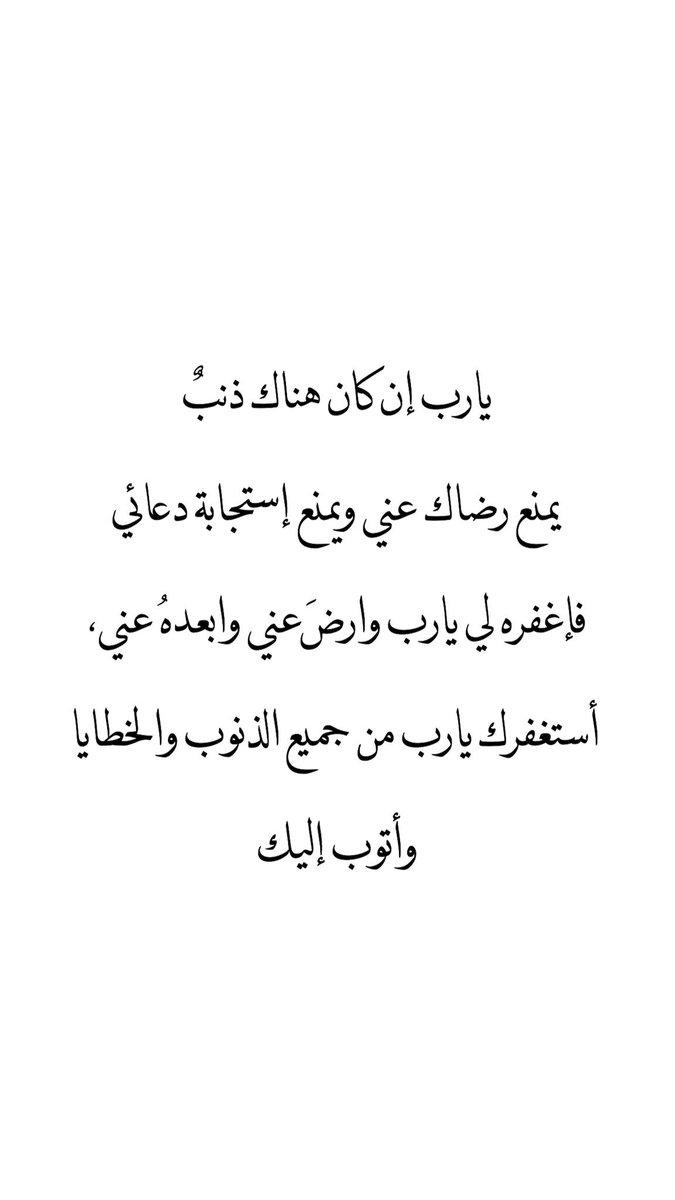 يارب إن كان هناك ذنبٌ
يمنع رضاك عني ويمنع إستجابة دعائي
فإغفره لي يارب وارضَ عني وابعدهُ عني،
أستغفرك يارب من جميع الذنوب والخطايا
وأتوب إليك